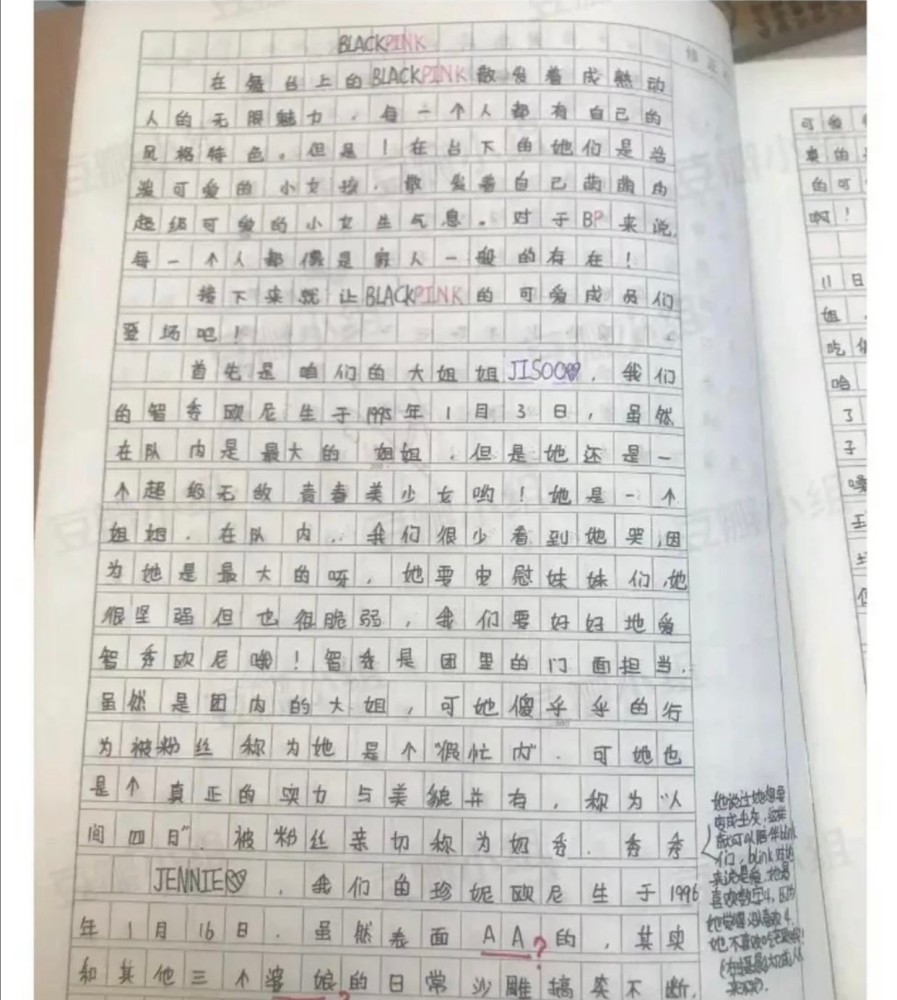 BLACKPINK
在舞台上的BLACKPINK散发着成熟动
人的无限魅力，每一个人都有自己的
风格特色。但是！在台下的她们是活
泼可爱的小女孩，散发着自己萌萌的
超级可爱的小女生气息。对于BP来说，
每一个人都像是家人一般的存在！
接下来就让BLACKPINK的可爱成员们
登场吧！
首先是咱们的大姐姐JISOO♡，我们
的智秀欧尼生于1995年1月3日，虽然
在队内是最大的姐姐，但是她还是一
个超级无敌青春美少女哟！她是一个
姐姐，在队内，我们很少看到她哭，因
为她是最大的呀，她要安慰妹妹们，她
很坚强但也很脆弱，我们要好好地爱
智秀欧尼哦！智秀是团里的门面担当，
虽然是团内的大姐，可她傻乎乎的行
为被粉丝称为她是个"假忙内"．可她也
是个真正的实力与美貌并有，称为"人
间四日"．被粉丝亲切称为奶秀．秀秀
JENNIE♡，我们的珍妮欧尼生于1996
年1月16日．虽然表面AA?的，其实
和其他三个婆娘?的日常沙雕搞笑不断，
她说过她想要
变成尘灰，这样
就可以陪伴blink
们，blink对她
来说是爱，她最
喜欢数字4，因为
她觉得没人喜欢4．
可爱
的可
啊！
11日
姐，
吃
哈
了
子
豆瓣小组
豆瓣小组
豆瓣小组